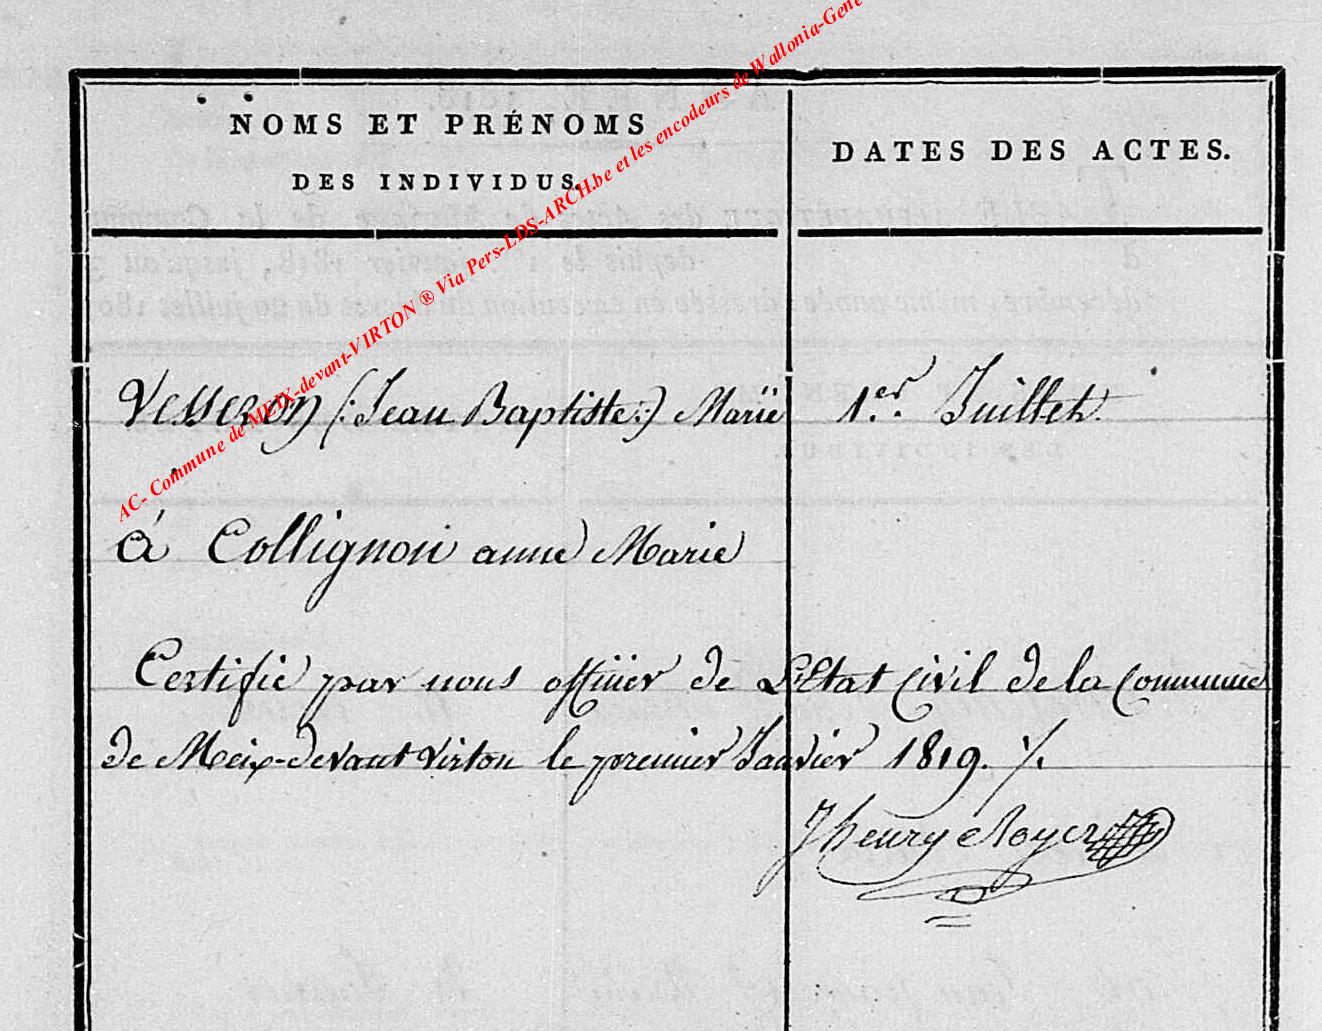 NOMS ET PRÉNOMS
DES INDIVIDUS.
DATES DES ACTES.
AC- Commune de MEIX-devant-VIRTON ® Via Pers-LDS-ARCH.be et les encodeurs de Wallonia-Gene
Vesseron (: Jean Baptiste :) Marié 1.er Juillet.
à Collignon anne Marie
Certifié par nous officier de L'Etat Civil de la Commune
de Meix-devant Virton le premier Janvier 1819. /.
J henry Royer